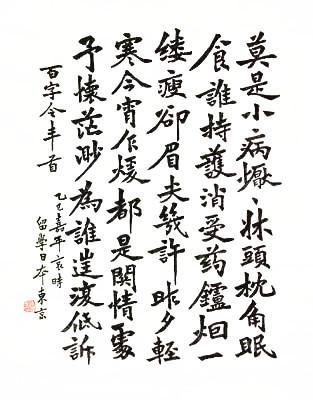 莫是小病懨〻牀頭枕角眠
食誰持護消受药鑪烟一
縷瘦卻眉尖幾許昨夕輕
寒今宵乍煖都是関情處
予懷茫渺為誰遑復低訴
百字令半首
乙巳嘉平哀時
留學日本東京